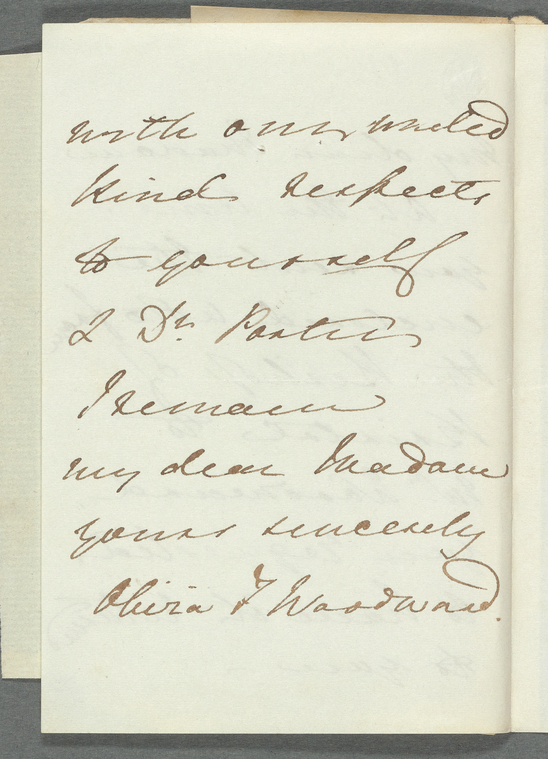 with our united
kind respects
to yourself
& Dr. Porter
I remain
my dear Madam
yours sincerely
F Woodward.